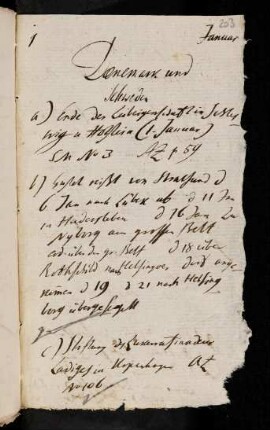 203
1 Januar
Dänemark und
Schweden
a) Ende der Leibeigenschaft in Schles
wig u Hollstein (1. Januar)
No 3 AZ p 59
b) Gustav reißt von Stralsund d
6 Jan nach Lübek ab d 11 Jan
in Hadersleben d 16 Jan zu
Nyborg am großen Belt
über den gr. Belt d 18 über
Rothschild nach Helsingoer dort ange
kommen d 19 d 21 nach Helsing
borg übergesegelt
c) Stiftung des
in Kopenhagen AZ
No 106